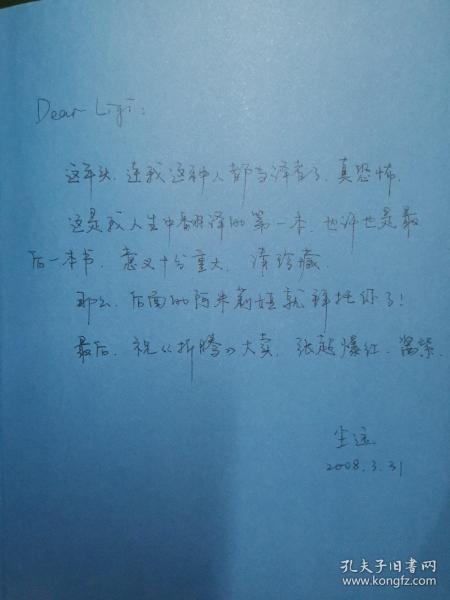 Dear Ligi:
这年头,连我这种人都当译者了,真恐怖.
这是我人生中翻译的第一本,也许也是最
后一本书,意义十分重大,请珍藏.
那么,后面的阿米莉姐就拜托你了!
最后,祝《折腾》大卖,张 爆红,
尘远
2008.3.31
孔夫子旧书网
www.kongfz.com